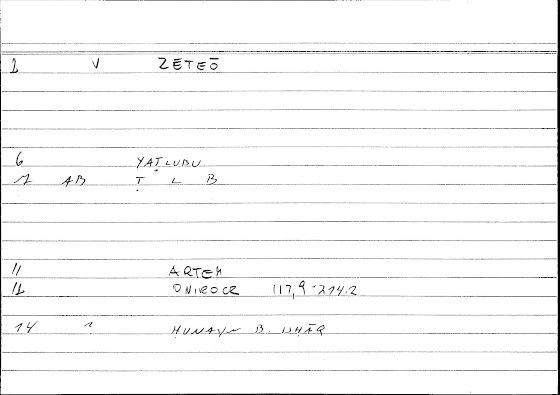 1 V ZĒTEŌ
6 YAṬLUBU
7 AB Ṭ L B
11 ARTEM
12 ONIROCR 117,9-214.2
14 1 ḤUNAYN B. ISḤĀQ